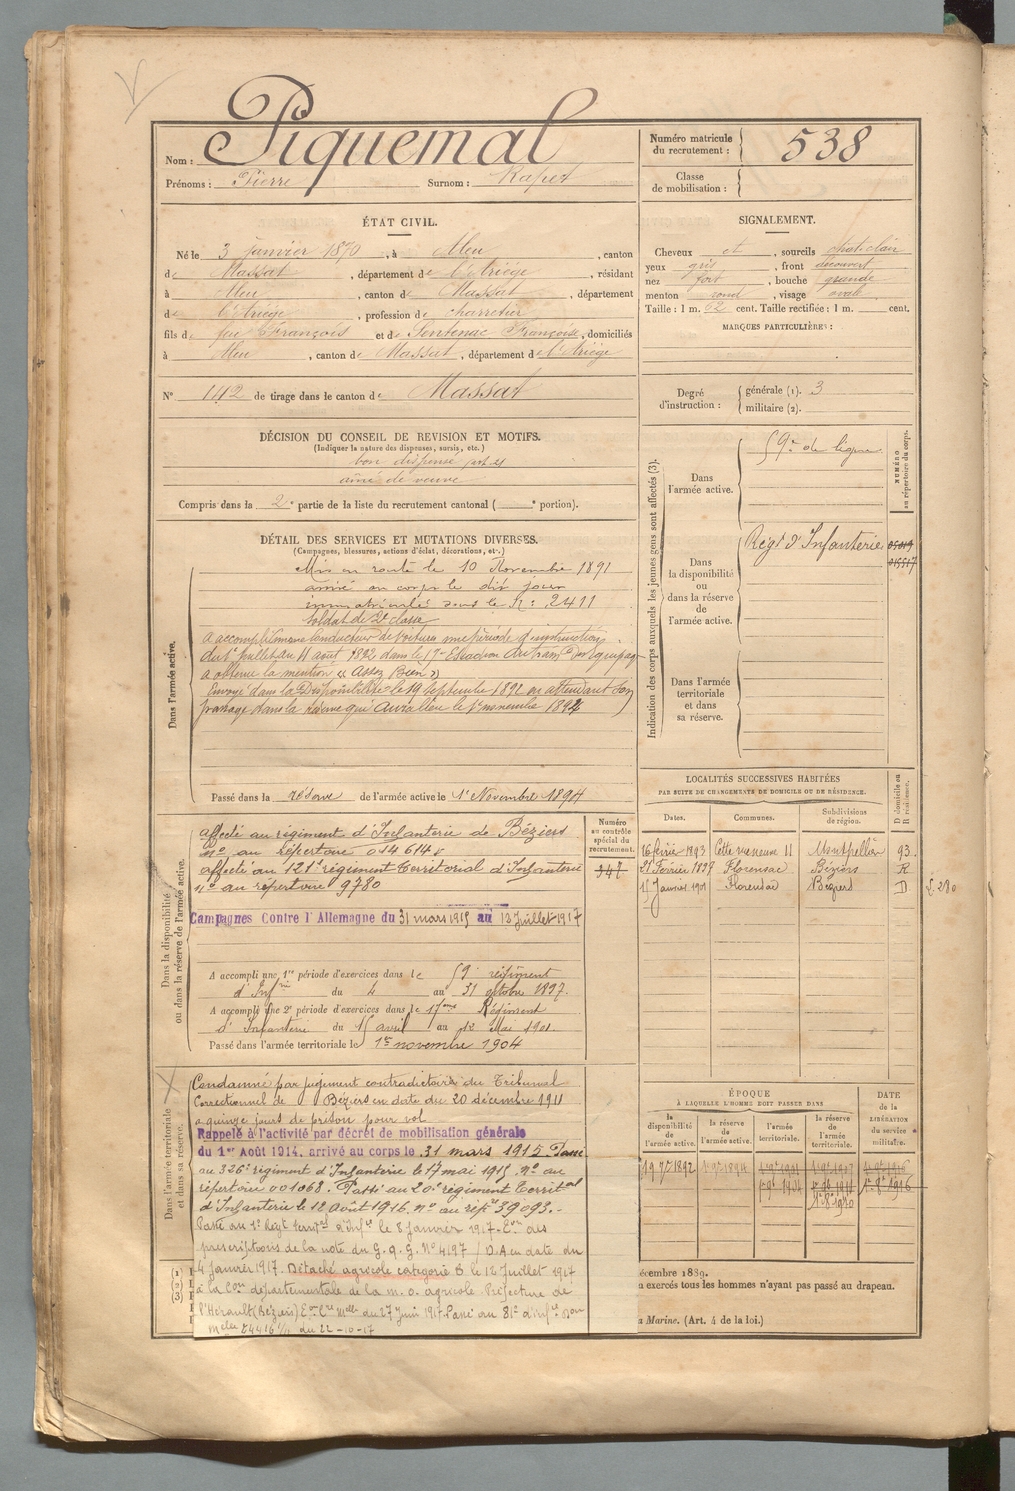 Nom : Piquemal
Prénoms : Pierre Surnom : Rapet
Numéro matricule du recrutement : 538
Classe de mobilisation :
ÉTAT CIVIL.
Né le 3 janvier 1870, à Aleu, canton
de Massat, département de l'Ariège, résidant
à Aleu, canton de Massat, département
de l'Ariège, profession de charretier
fils de feu François et de Sentenac Françoise, domiciliés
à Aleu, canton de Massat, département de l'Ariège
N° 142 de tirage dans le canton de Massat
SIGNALEMENT.
Cheveux et, sourcils chat. clair
yeux gris, front découvert
nez fort, bouche grande
menton rond, visage ovale
Taille : 1 m. 62 cent. Taille rectifiée : 1 m. cent.
MARQUES PARTICULIÈRES :
Degré d'instruction : générale (1). 3
militaire (2).
DÉCISION DU CONSEIL DE REVISION ET MOTIFS.
(Indiquer la nature des dispenses, sursis, etc.)
bon dispensé art 21
aîné de veuve
Compris dans la 2e partie de la liste du recrutement cantonal ( e portion).
DÉTAIL DES SERVICES ET MUTATIONS DIVERSES.
(Campagnes, blessures, actions d'éclat, décorations, etc.)
Dans l'armée active.
Mis en route le 10 Novembre 1891
arrivé au corps le dit jour
immatriculé sous le N° 2411
soldat de 2e classe
a accompli comme conducteur de voitures une période d'instruction
du 1er Juillet au 11 août 1892 dans le 17me Escadron du train des équipages
a obtenu la mention « Assez Bien »
Envoyé dans la Disponibilité le 19 Septembre 1892 en attendant son
passage dans la réserve qui aura lieu le 1er novembre 1894
Passé dans la réserve de l'armée active le 1er Novembre 1894
Indication des corps auxquels les jeunes gens sont affectés (3).
Dans l'armée active. 59e de ligne
NUMÉRO au répertoire du corps.
Dans la disponibilité ou dans la réserve de l'armée active. Régt d'Infanterie
015517
Dans l'armée territoriale et dans sa réserve.
LOCALITÉS SUCCESSIVES HABITÉES
PAR SUITE DE CHANGEMENTS DE DOMICILE OU DE RÉSIDENCE.
Dates. Communes. Subdivisions de région. D domicile ou R résidence.
16 février 1893 Cette Montpellier
21 Février 1897 Florensac Béziers R
15 Janvier 1901 Florensac Béziers D
Dans la disponibilité ou dans la réserve de l'armée active.
Numéro au contrôle spécial du recrutement.
347
affecté au régiment d'Infanterie de Béziers
No au répertoire 014614
affecté au 121e régiment territorial d'Infanterie
No au répertoire 9780
Campagnes Contre l'Allemagne du 31 mars 1915 au 13 juillet 1917
A accompli une 1re période d'exercices dans le 59e régiment
d'Infrie du 4 au 31 octobre 1897.
A accompli une 2e période d'exercices dans le 17me Régiment
d'Infanterie du 15 avril au 12 Mai 1901
Passé dans l'armée territoriale le 1er novembre 1904
Dans l'armée territoriale et dans sa réserve.
Condamné par jugement contradictoire du Tribunal
Correctionnel de Béziers en date du 20 décembre 1911
a quinze jours de prison pour vol
Rappelé à l'activité par décret de mobilisation générale
du 1er Août 1914, arrivé au corps le 31 mars 1915 Passé
au 326e régiment d'Infanterie le 17 mai 1915 No au
répertoire 001068. Passé au 20e régiment Territal
d'Infanterie le 12 août 1916. No au répre 39093.-
Passé au 1er Régt territal d'Infie le 8 Janvier 1917. Eon des
prescriptions de la note du G.Q.G. No 4197 / D.A en date du
4 janvier 1917. Détaché agricole catégorie B le 12 Juillet 1917
à la Con départementale de la m. o. agricole Préfecture de
l'Hérault (Béziers) Eon Cre Mlle du 27 Juin 1917. Passé au 81e d'Infie
du 22-10-17
ÉPOQUE
À LAQUELLE L'HOMME DOIT PASSER DANS
la disponibilité de l'armée active. la réserve de l'armée active. l'armée territoriale. la réserve de l'armée territoriale.
DATE de la LIBÉRATION du service militaire.
19 7bre 1892 1er 9bre 1894
écembre 1889.
a exercés tous les hommes n'ayant pas passé au drapeau.
a Marine. (Art. 4 de la loi.)